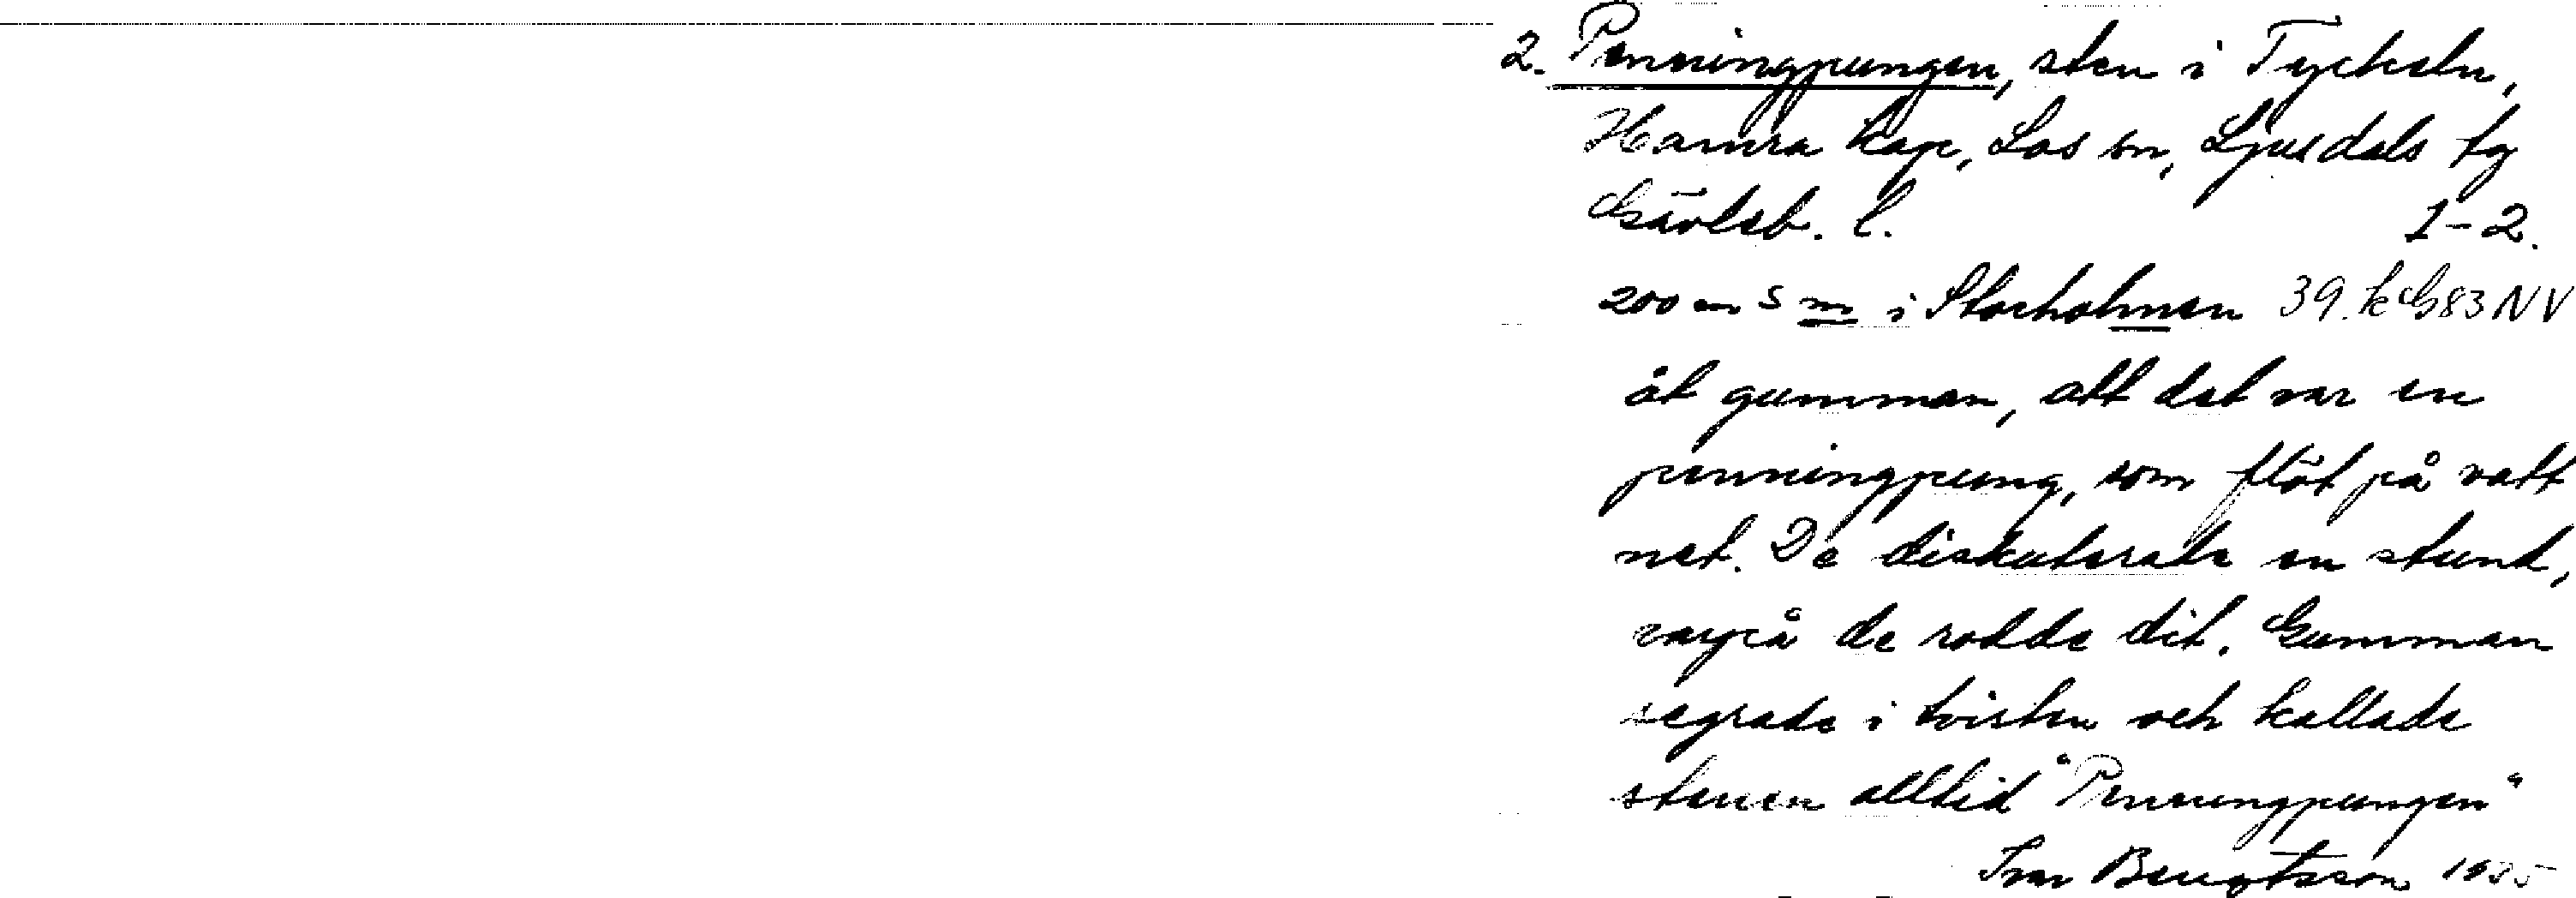 2. Penningpungen, sten i Tyckeln,
Hamra kap, Los sn, Ljusdals tg
Gävleb. l. 1-2.
200 m S m i Storholmen 39. k G83 NV
åt gumman, att det var en
penningpung, som flöt på vatt
net. De diskuterade en stund,
varpå de rodde dit. Gumman
segrade i tvisten och kallade
stenen alltid "Penningpungen"
Ivar Bengtsson 1935